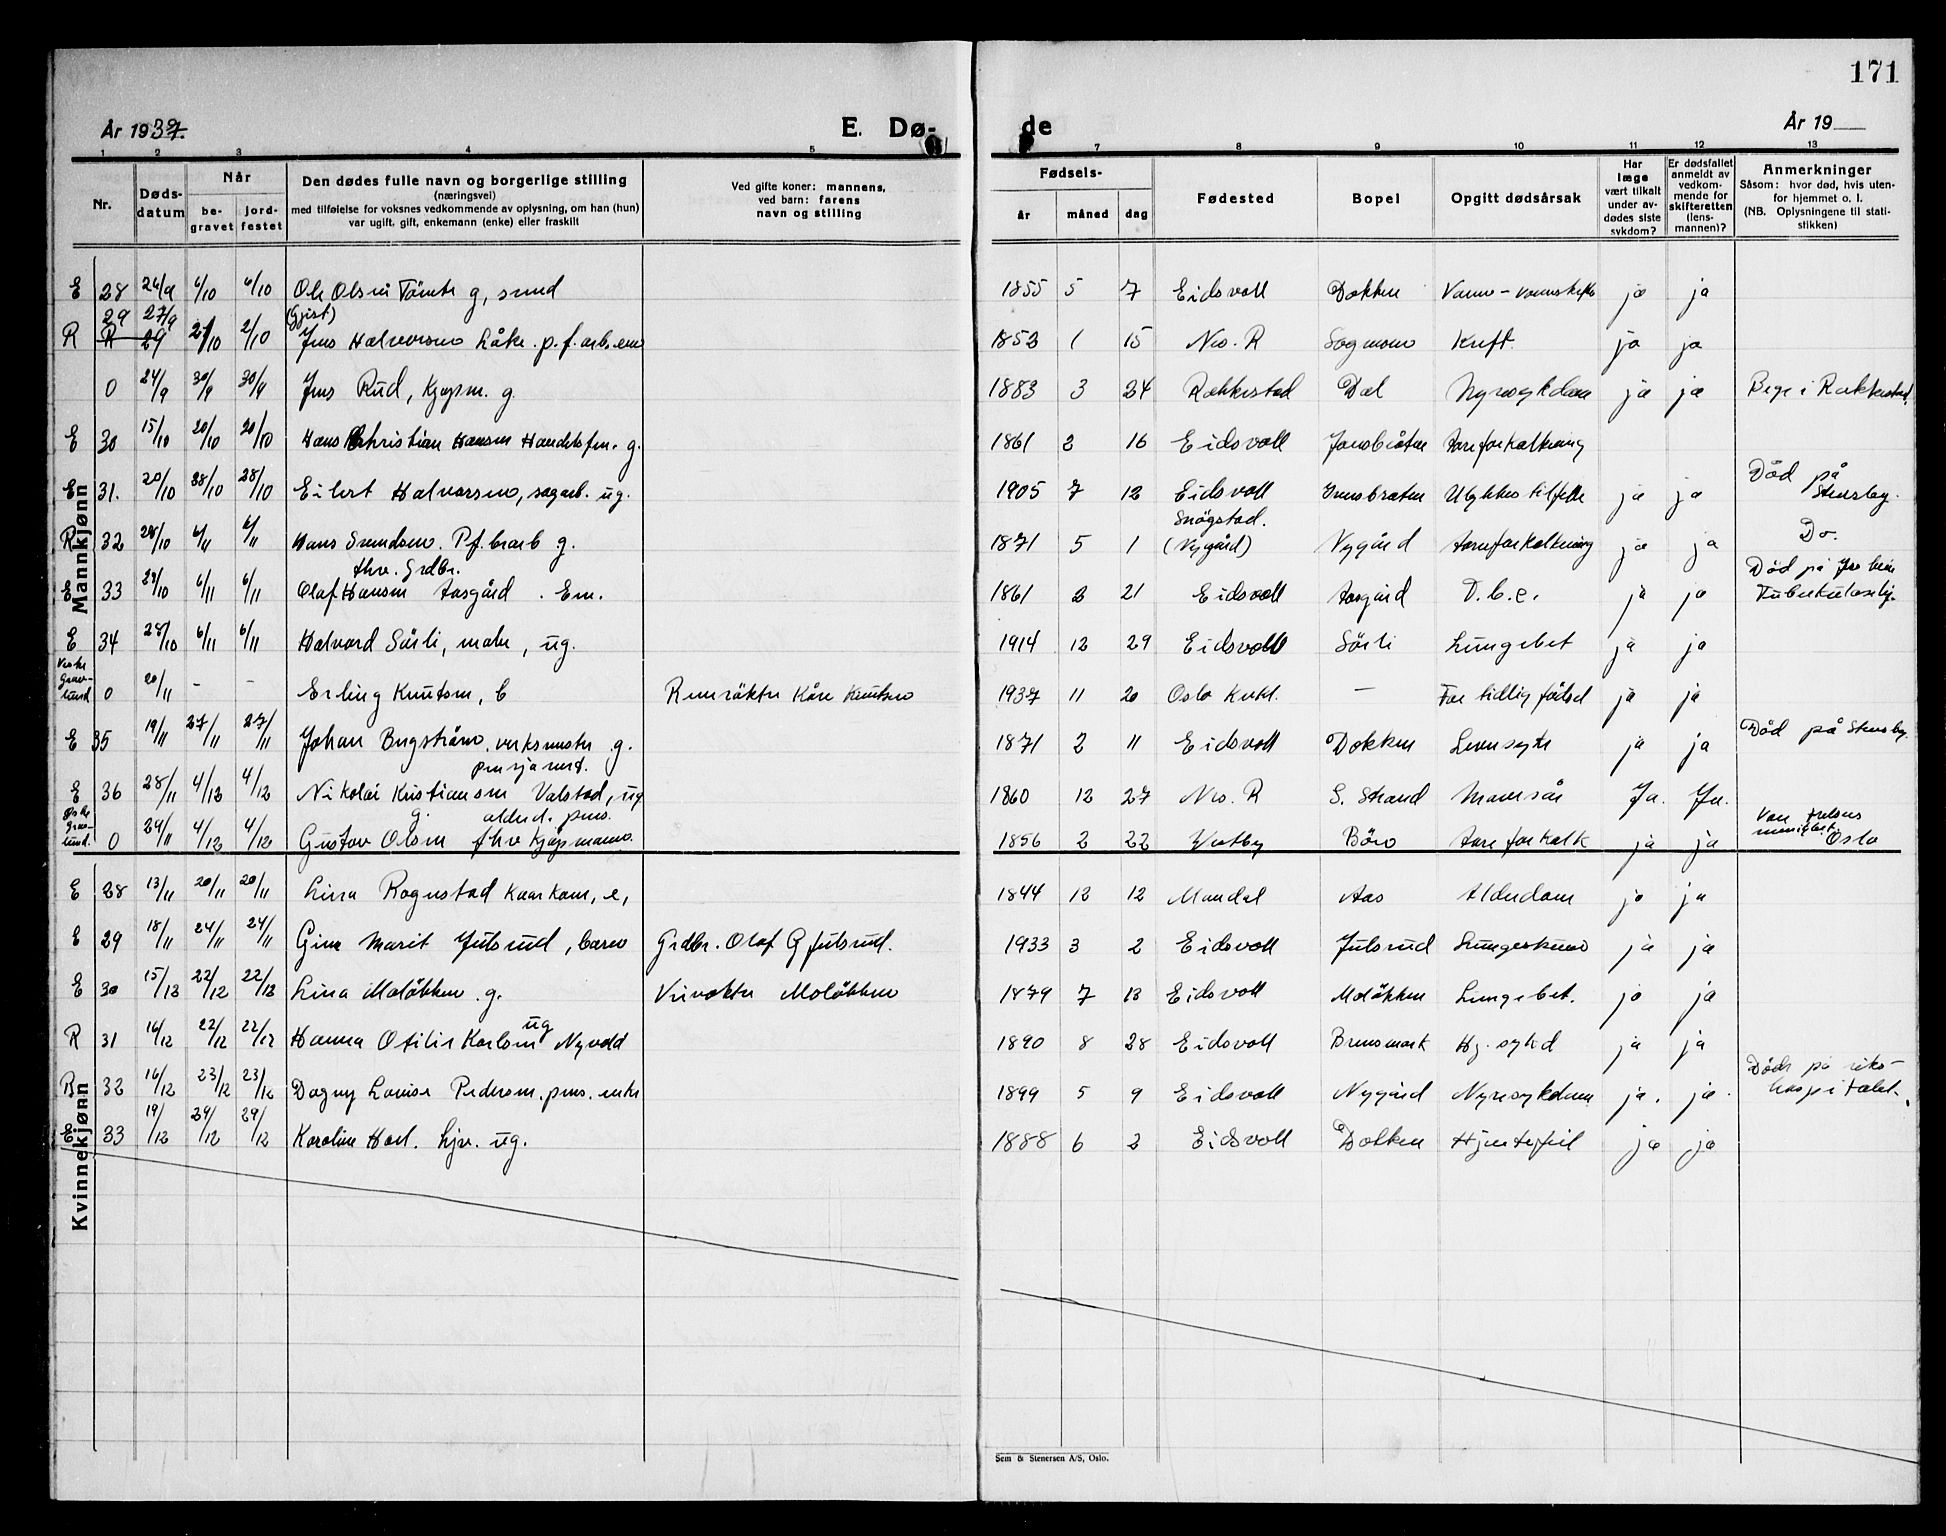 171
År 1937.
E. Dø-
de
År 19
1 2 3 4 5 7 8 9 10 11 12 13
Nr.
Døds-
datum
Når
be-
gravet
jord-
festet
Den dødes fulle navn og borgerlige stilling
(næringsvei)
med tilføielse for voksnes vedkommende av oplysning, om han (hun)
var ugift, gift, enkemann (enke) eller fraskilt
Ved gifte koner: mannens,
ved barn: farens
navn og stilling
Fødsels-
år måned dag
Fødested
Bopel
Opgitt dødsårsak
Har
læge
vært tilkalt
under av-
dødes siste
sykdom?
Er dødsfallet
anmeldt av
vedkom-
mende for
skifteretten
(lens-
mannen)?
Anmerkninger
Såsom: hvor død, hvis uten-
for hjemmet o. l.
(NB. Oplysningene til stati-
stikken)
Mannkjønn
E 28 26/9 4/10 4/10 Ole Olsen Tömte g, smed 1855 5 7 Eidsvoll Dokken ja ja
29 27/9
R 29 2/10 2/10 Jens Halvorsen Låke. p.f.arb. em 1853 1 15 Nes. R Sagmoen Kreft. ja ja
0 24/9 30/9 30/9 Jens Rud, Kjøpm. g. 1883 3 24 Rakkestad Dal Nyresykdom ja ja Begr i Rakkestad.
E 30 15/10 20/10 20/10 Hans Christian Hansen Handelsfm. g. 1861 2 16 Eidsvoll Jønsbråten Aareforkalkning
E 31. 20/10 28/10 28/10 Eilert Halvorsen, sagarb. ug. 1905 7 12 Eidsvoll Ulykkestilfelle ja ja Död på Stensby.
R 32 28/10 6/11 6/11 Hans Svendsen. Pf. brarb g. 1871 5 1 Snögstad. (Nygård) Nygård Aareforkalkning ja ja Do.
fhv. Grdbr.
E 33 29/10 6/11 6/11 Olaf Hansen Aasgård. Em. 1861 2 21 Eidsvoll Aasgård T.b.c. ja ja Död på Tuberkulosehj.
E 34 28/10 6/11 6/11 Halvard Sörli, maler, ug. 1914 12 29 Eidsvoll Sörli Lungebet ja ja
0 20/11 - - Erling Knutsen, b Remrökter Kåre Knutsen 1937 11 20 Oslo Kvkl. — For tidlig fødsel ja ja
E 35 19/11 27/11 27/11 Johan Bergström, verksmester g. 1871 2 11 Eidsvoll Dokken Leversyke ja ja Död på Stensby.
pensjonert.
E 36 28/11 4/12 4/12 Nikolai Kristiansen Valstad, ug 1860 12 27 Nes. R S. Strand Mavesår Ja. Ja.
g. alderd. pens.
0 29/11 4/12 4/12 Gustav Olsen fhv kjøpmann. 1856 2 22 Vestby Böro Aareforkalk ja ja Oslo
Kvinnekjønn
E 28 13/11 20/11 20/11 Lina Rognstad, e, 1844 12 12 Mandal Aas Alderdom ja ja
E 29 18/11 24/11 24/11 Gina Marit Julsrud, barn Grdbr. Olaf G Julsrud. 1933 3 2 Eidsvoll Julsrud ja ja
E 30 15/12 22/12 22/12 Lina Molökken. g. Molökken 1879 7 13 Eidsvoll Molökken Lungebet. ja ja
R 31 16/12 22/12 22/12 Hanna Otilie Karlsen ug Nyvold 1890 8 28 Eidsvoll Brensmork Hj. sykd ja ja
R 32 16/12 23/12 23/12 Dagny Louise Pedersen. pens. enke 1899 5 9 Eidsvoll Nygård Nyresykdom ja. ja. Döde på rikshospitalet.
E 33 19/12 29/12 29/12 Karoline Hoel. Ljr. ug. 1888 6 2 Eidsvoll Dokken Hjertefeil ja ja
Sem & Stenersen A/S, Oslo.